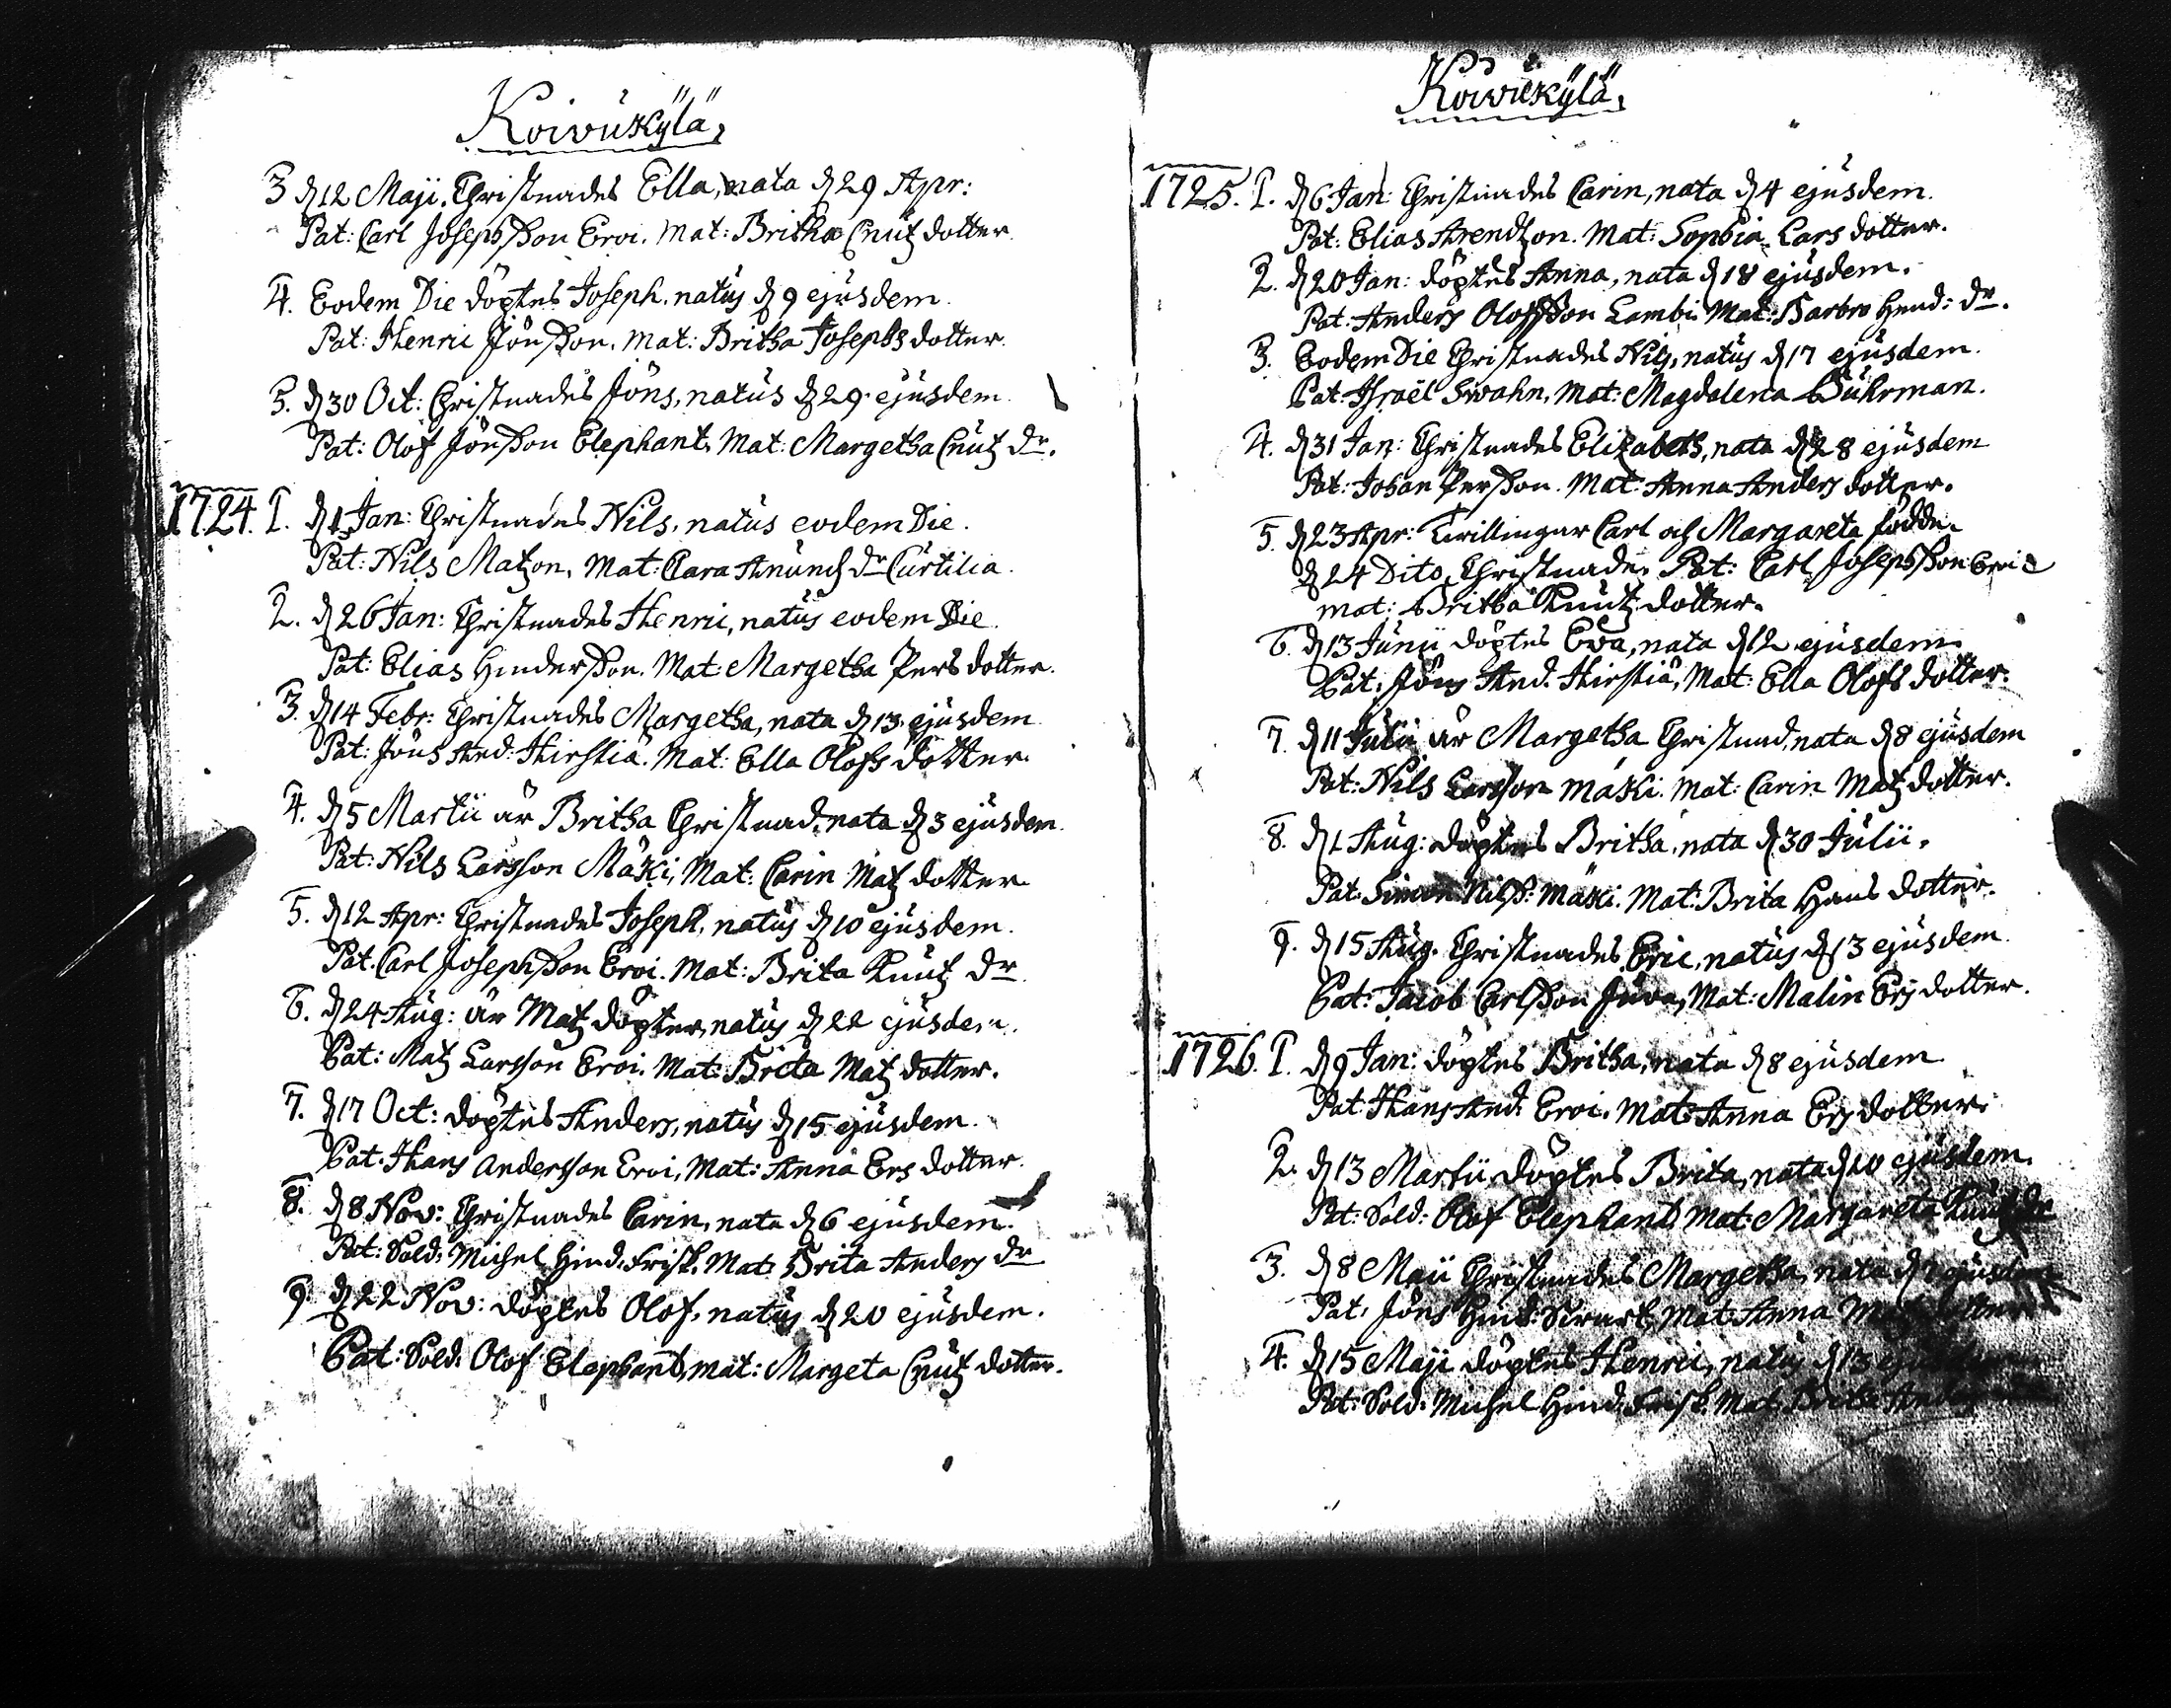 Koivukylä,
3 d 12 Maji. Christnades Ella, nata d 29 Apr:
Pat: Carl Josephsson Eroi. Mat: Britha Cnutz dotter
4. Eodem Die döptes Joseph, natus d 9 ejusdem.
Pat: Henric Jönsson. Mat: Britha Josephs dotter.
5. d 30 Oct: Christnades Jöns, natus d 29 ejusdem.
Pat: Olof Jönsson Elephant. Mat: Margetha Cnutz dr.
1724. 1. d 1 Jan: Christnades Nils, natus eodem Die.
Pat: Nils Matzon. Mat: Clara Anunds dr Curtilia.
2. d 26 Jan: Christnades Henric, natus eodem Die.
Pat: Elias Hindersson. Mat: Margetha Pers dotter.
3. d 14 Febr: Christnades Margetha, nata d 13 ejusdem
Pat: Jöns And: Hirstiä. Mat: Ella Olofs dotter.
4. d 5 Martii är Britha Christnad, nata d 3 ejusdem.
Pat: Nils Larsson Mäki, Mat: Carin Matz dotter
5. d 12 Apr: Christnades Joseph, natus d 10 ejusdem.
Pat. Carl Josephsson Eroi. Mat: Brita Knutz dr
6. d 24 Aug: är Matz döpter, natus d 22 ejusdem.
Pat: Matz Larsson Eroi. Mat: Brita Matz dotter.
7. d 17 Oct: döptes Anders, natus d 15 ejusdem.
Pat: Hans Andersson Eroi, Mat: Anna Ers dotter.
8. d 8 Nov: Christnades Carin, nata d 6 ejusdem.
Pat: Sold: Michel Hind. Frisk. Mat: Brita Anders dr
9. d 22 Nov: döptes Olof, natus d 20 ejusdem.
Pat: Sold: Olof Elephant, mat: Margeta Cnutz dotter.
Koivukylä,
1725. 1. d 6 Jan: Christnades Carin, nata d 4 ejusdem.
Pat: Elias Arendzon. Mat: Sophia Lars dotter.
2. d 20 Jan: döptes Anna, nata d 18 ejusdem.
Pat: Anders Olofsson Lambi. Mat: Barbro Hend: dr.
3. Eodem Die Christnades Nils, natus d 17 ejusdem.
Pat: Israël Swahn, Mat: Magdalena Buhrman.
4. d 31 Jan: Christnades Elizabeth, nata d 28 ejusdem
Pat: Johan Persson. Mat: Anna Anders dotter.
5. d 23 Apr: Twillingar Carl och Margareta födde.
d 24 Dito, Christnade. Pat: Carl Josephsson Eroi
mat: Britha Knutz dotter.
6. d 13 Junii döptes Eva, nata d 12 ejusdem.
Pat: Jöns And. Hirstiä, Mat: Ella Olofs dotter.
7. d 11 Julii är Margetha Christnad, nata d 8 ejusdem
Pat: Nils Larsson Mäki. Mat: Carin Matz dotter.
8. d 1 Aug: döptes Britha, nata d 30 Julii.
Pat: Simon Nilss: Mäki. Mat: Brita Hans dotter.
9. d 15 Aug. Christnades Eric, natus d 13 ejusdem
Pat: Jacob Carlsson Juva, Mat: Malin Ers dotter.
1726. 1. d 9 Jan: döptes Britha, nata d 8 ejusdem
Pat: Hans And: Eroi. Mat: Anna Ers dotter.
2. d 13 Martii döptes Brita, nata d 10 ejusdem.
Pat: Sold: Olof Elephant, Mat: Margareta Knutz dr
3. d 8 Maii Christnades Margetha, nata d 7 ejusdem
Pat: Jöns Hind: Mat: Anna Matz dotter
4. d 15 Maji döptes Henric, natus d 13 ejusdem
Pat: Sold: Michel Hind: Frisk. Mat: Brita Anders